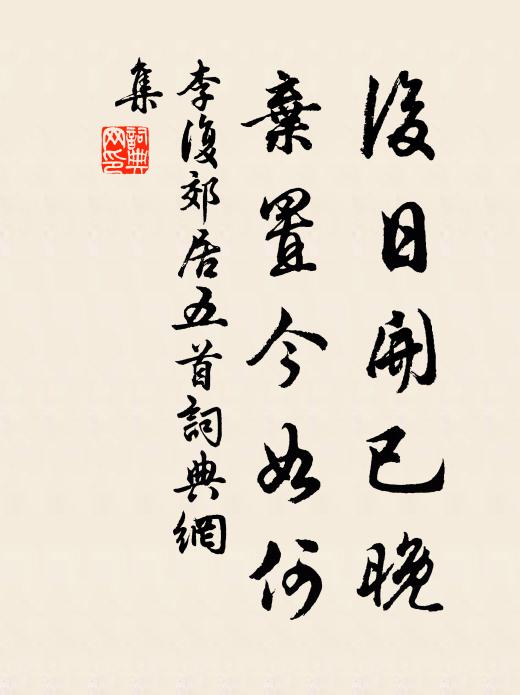 後日開已晚
棄置今如何
李復郊居五首詞典網
集
詞典
网印